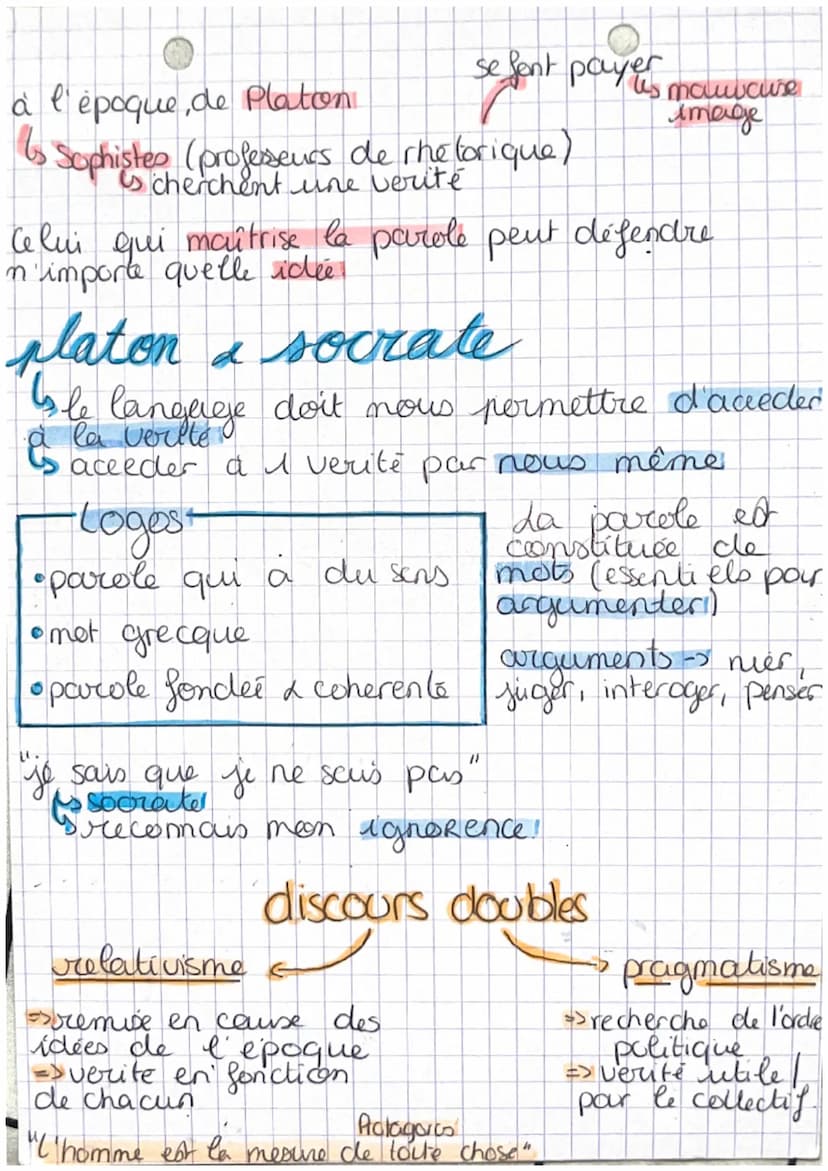 se font payer
↳ mauvaise
image
à l'époque, de Platon
↳ Sophistes (professeurs de rhetorique)
↳ cherchent une verité
Celui qui maîtrise la parole peut défendre
n'importe quelle idée
platon & socrate
↳ le langage doit nous permettre d'acceder
à la verité
↳ acceder à 1 verité par nous même
Logos
• parole qui à du sens
• mot grecque
• parole fondée & coherente
La parole est
constituée de
mots (essentiels pour
argumenter)
arguments -> nier,
juger, interoger, penser
"je sais que je ne sais pas"
↳ socrate
↳ reconnais mon ignorence!
discours doubles
relativisme
=> remise en cause des
idées de l'epoque
=> verite en fonction
de chacun
pragmatisme
=> recherche de l'ordre
politique
=> verité utile
par le collectif
Protagoras
"L'homme est la mesure de toute chose"